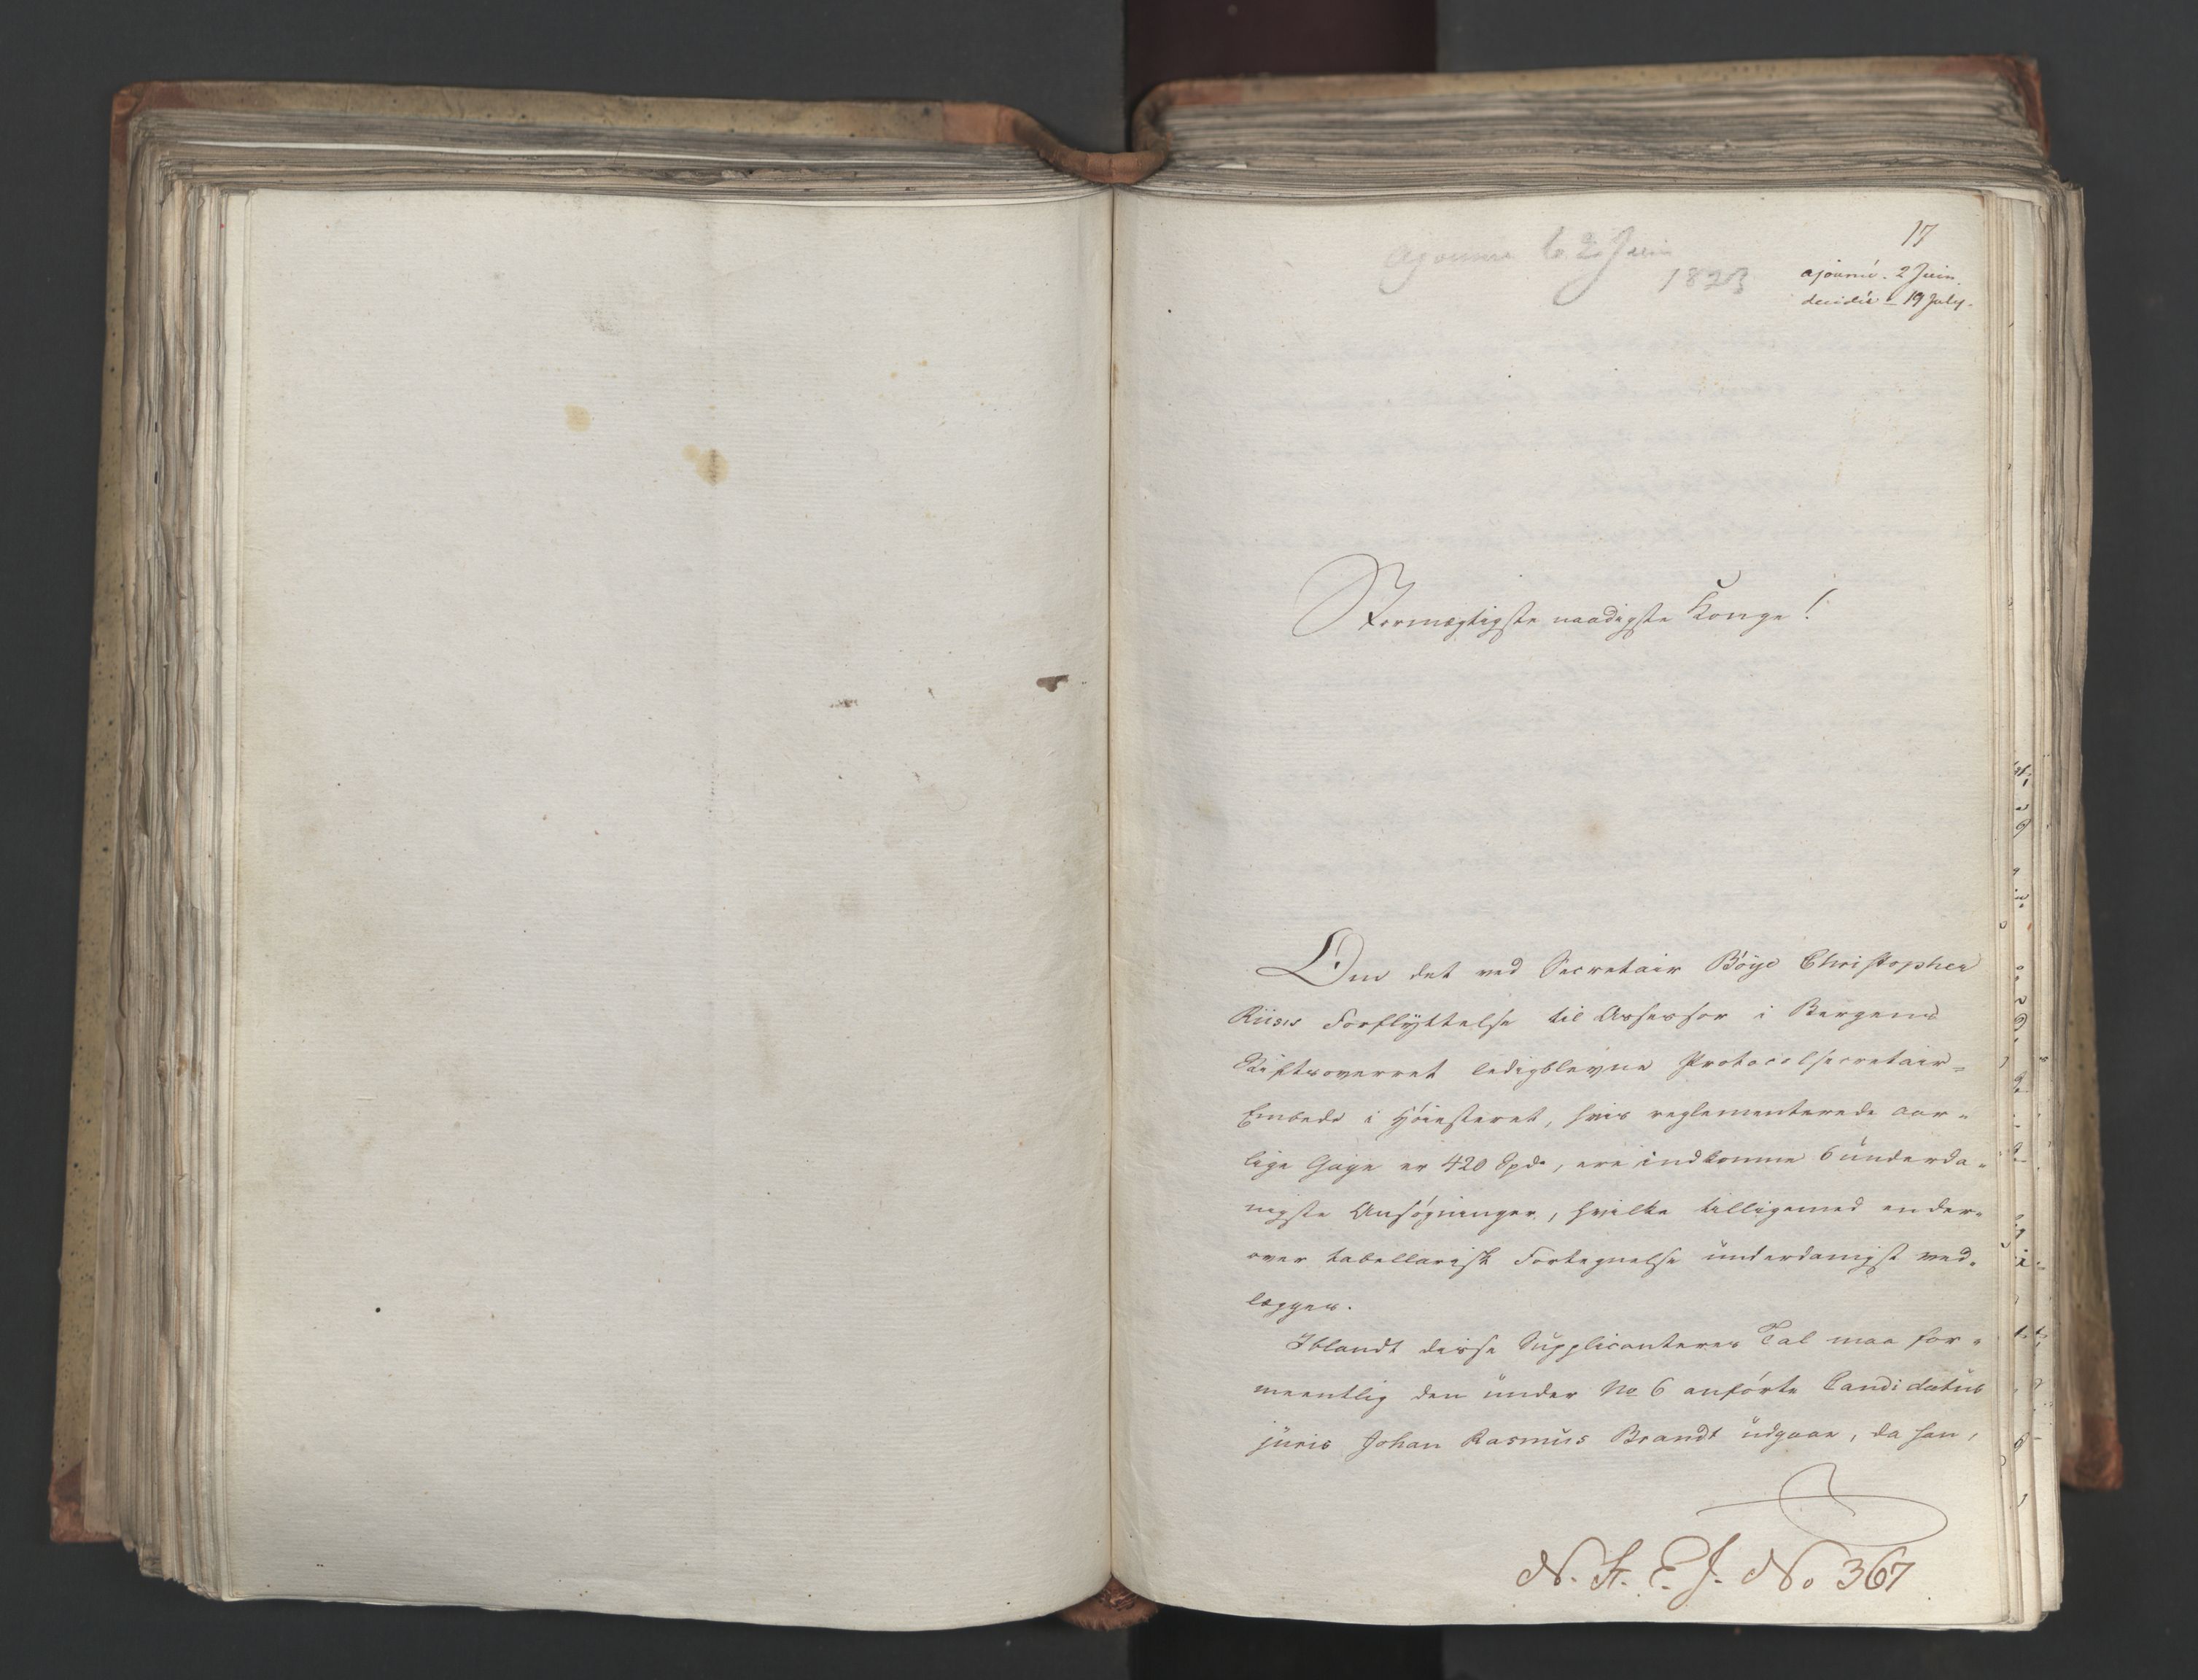 17
ajourné le 2 Juin
1823
ajourné. 2 Juin.
decidée – 19 July.
Stormægtigste naadigste Konge!
Om det ved Secretair Böye Christopher
Riises Forflyttelse til Assessor i Bergens
Stiftsoverret ledigblevne Protocolsecretair-
Embede i Höiesteret, hvis reglementerede aar-
lige Gage er 420 Spd., ere indkomne 6 underda-
nigste Ansögninger, hvilke tilligemed en der-
over tabellarisk Fortegnelse underdanigst ved-
lægges.
Iblandt disse Supplicanteres Tal maa for-
meentlig den under No 6 anförte Candidatus
juris Johan Rasmus Brandt udgaae, da han,
N. St. E. J. No 367